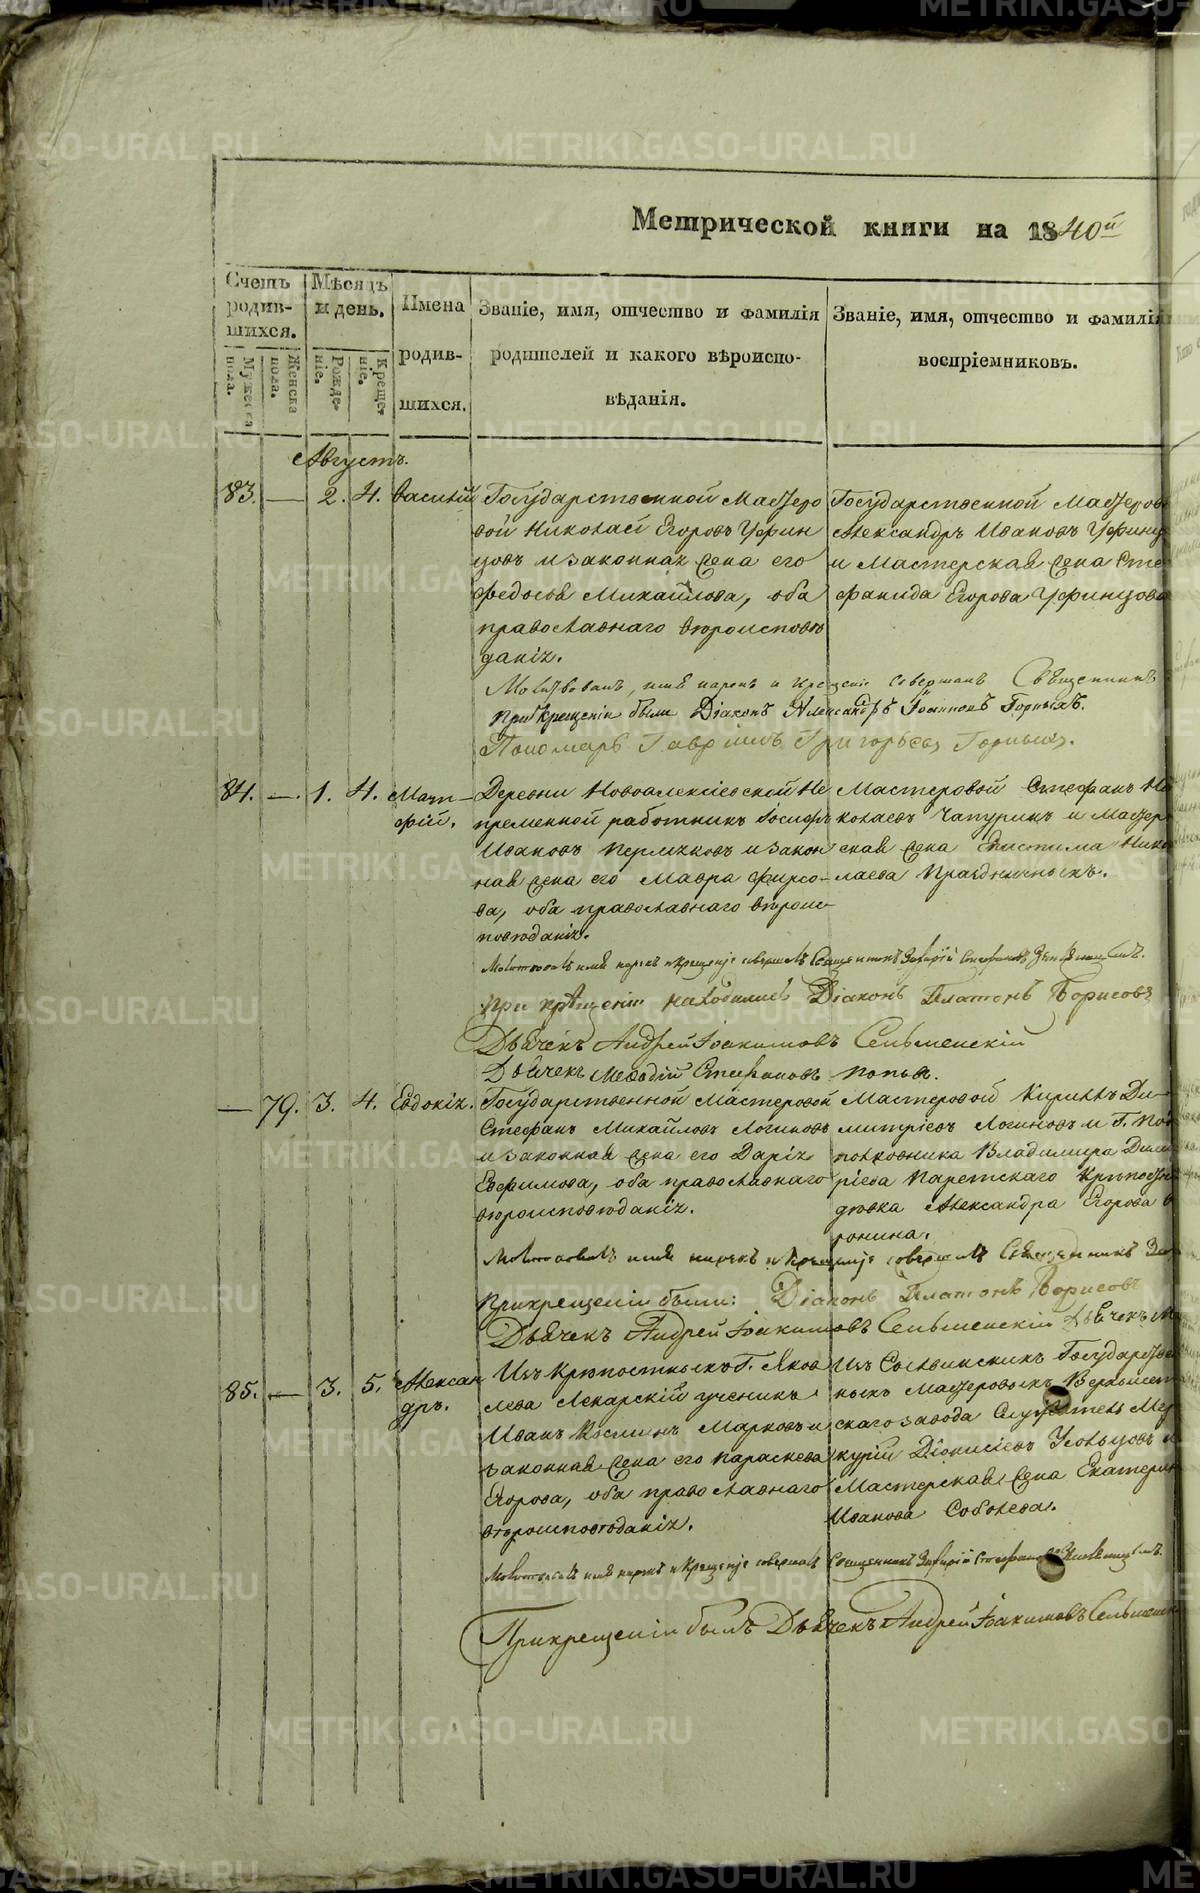 Метрической книги на 1840й
Счетъ родив-шихся.
Мужеска пола.
Женска пола.
Мѣсяцъ и день.
Рожде-ніе.
Креще-ніе.
Имена
родив-
шихся.
Званіе, имя, отчество и фамилія
родителей и какого вѣроиспо-
вѣданія.
Званіе, имя, отчество и фамилія
воспріемниковъ.
Августъ.
83. — 2. 4. Василій
Государственной Мастеро
вой Николай Егоровъ Уфин
цовъ и законная жена его
Федосья Михайлова, оба
православнаго вѣроисповѣ
данія.
Государственной Мастеров
Александръ Ивановъ Уфинц
и Мастерская жена Сте
фанида Егорова Уфинцова
Молитвовалъ, имя нарекъ и Крещеніе совершилъ Священникъ
При Крещеніи были Діаконъ Александръ Іоанновъ Горныхъ.
Пономарь Гавріилъ Григорьевъ Горныхъ.
84. — 1. 4. Мат-
фій.
Деревни Новоалексіевской Не
пременной работникъ Іосифъ
Ивановъ Пермяковъ и закон
ная жена его Мавра Фирсо-
ва, оба православнаго вѣроис-
повѣданія.
Мастеровой Стефанъ Ни
колаевъ Чапуринъ и Мастер
ская жена Епистима Нико
лаева Праздничныхъ.
Молитвовалъ имя нарекъ и Крещеніе совершилъ Священникъ Захарій Стефановъ
При крещеніи находились Діаконъ Платонъ Борисовъ
Дьячекъ Андрей Іоакимовъ Сельменскій
Дьячекъ Меѳодій Стефановъ Попыл.
— 79. 3. 4. Евдокія.
Государственной Мастеровой
Стефанъ Михайловъ Логиновъ
и законная жена его Дарія
Евфимова, оба православнаго
вѣроисповѣданія.
Мастеровой Кириллъ Ди-
митріевъ Логиновъ и Г. Под
полковника Владимира Дими
ріева Паретскаго Крѣпостн
дѣвка Александра Егорова В
ронина.
Молитвовалъ имя нарекъ и Крещеніе совершилъ Священникъ За
При крещеніи были: Діаконъ Платонъ Борисовъ
Дьячекъ Андрей Іоакимовъ Сельменскій Дьячекъ М
85. — 3. 5. Алексан
дръ.
Изъ Крѣпостныхъ Г. Яков
лева Лекарскій ученикъ
Иванъ Косминъ Марковъ и
законная жена его Параскева
Егорова, оба православнаго
вѣроисповѣданія.
Изъ Сосвинскихъ Государстве
ныхъ Мастеровыхъ Верхъисет
скаго завода Служитель Мер
курій Діонисіевъ Усольцовъ и
Мастерская жена Екатерин
Иванова Соболева.
Молитвовалъ имя нарекъ и Крещеніе совершилъ Священникъ Захарій Стефановъ
При крещеніи былъ Дьячекъ Андрей Іоакимовъ Сельменск
METRIKI.GASO-URAL.RU